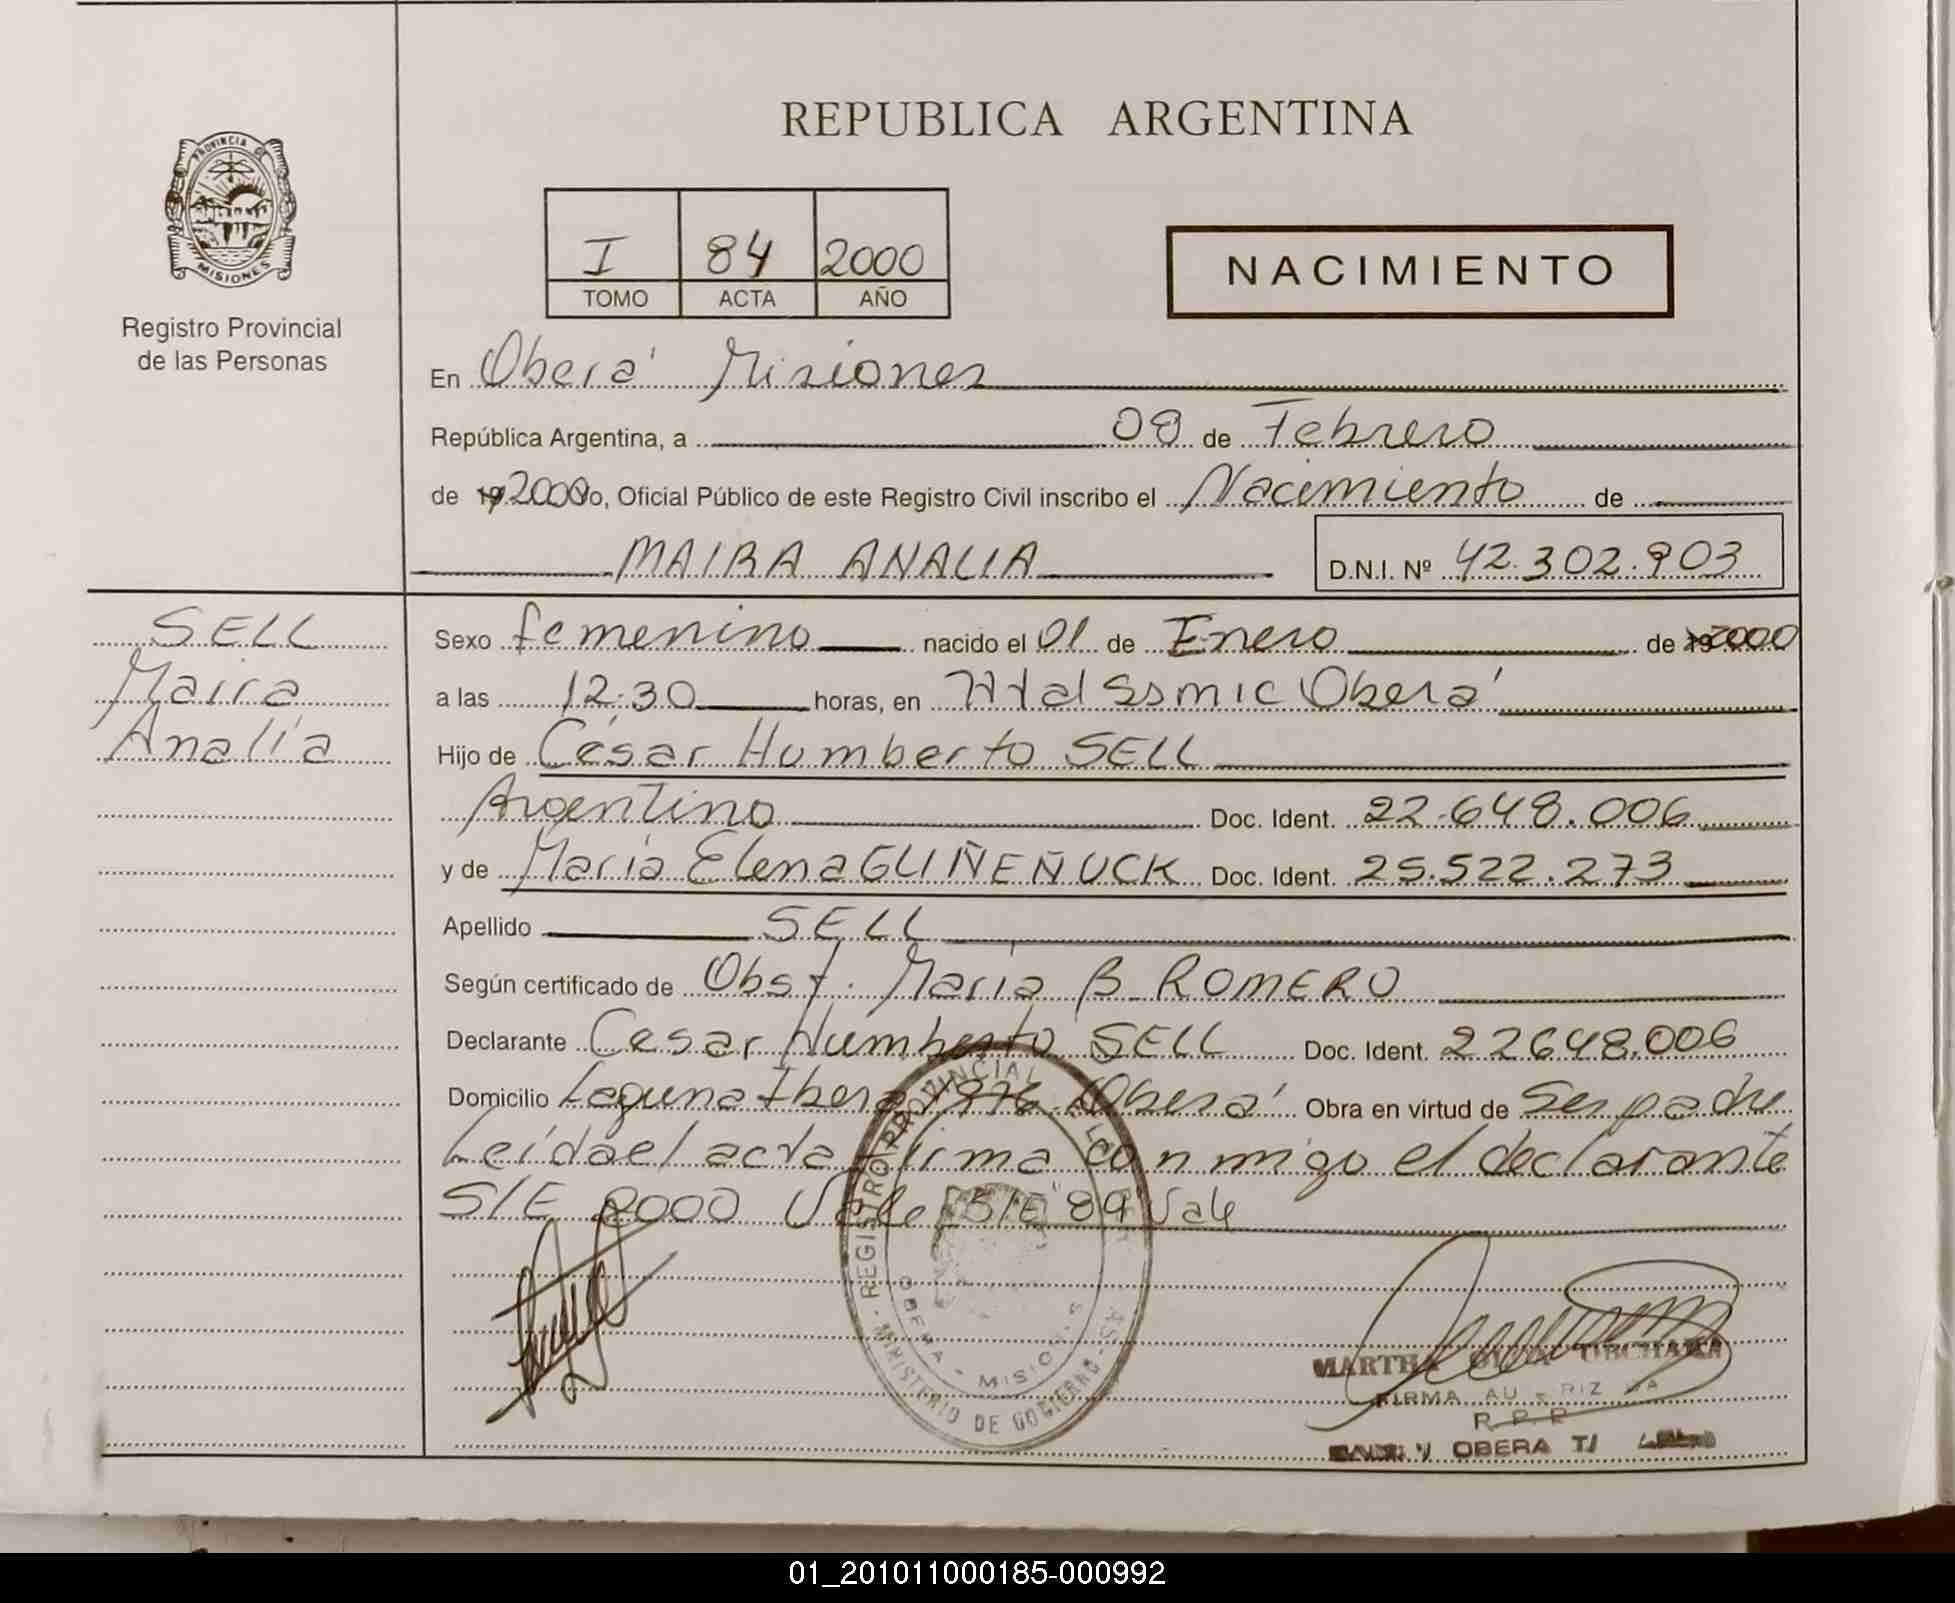 REPUBLICA ARGENTINA
PROVINCIA DE
MISIONES
Registro Provincial
de las Personas
I 84 2000
TOMO ACTA AÑO
NACIMIENTO
En Oberá Misiones
República Argentina, a 08 de Febrero
de 19 2000 Yo, Oficial Público de este Registro Civil inscribo el Nacimiento de
MAIRA ANALIA
D.N.I. Nº 42.302.903
SELL
Maira
Analía
Sexo femenino nacido el 01 de Enero de 19 2000
a las 12:30 horas, en Htal Ssmic Oberá
Hijo de César Humberto SELL
Argentino Doc. Ident. 22.648.006
y de María Elena GUÑEÑUCK Doc. Ident. 25.522.273
Apellido SELL
Según certificado de Obst. María B ROMERO
Declarante Cesar Humberto SELL Doc. Ident. 22648.006
Domicilio Laguna Ibera Oberá Obra en virtud de Ser padre
Leída el acta firma conmigo el declarante
S/E 2000 Vale S/E "89" Vale
REGISTRO PROVINCIAL DE LAS
OBERA - MISIONES
MINISTERIO DE GOBIERNO
MARTHA
FIRMA AUTORIZADA
R.P.P.
OBERA
01_201011000185-000992